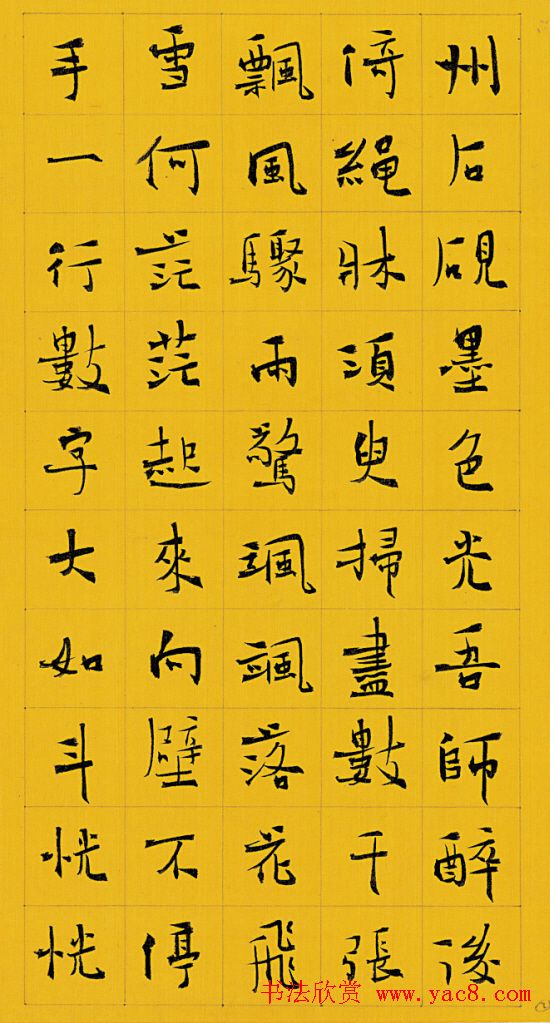 州石硯墨色光吾師醉後
倚繩牀須臾掃盡數千張
飄風驟雨驚颯颯落花飛
雪何茫茫起來向壁不停
手一行數字大如斗恍恍
书法欣赏 www.yac8.com